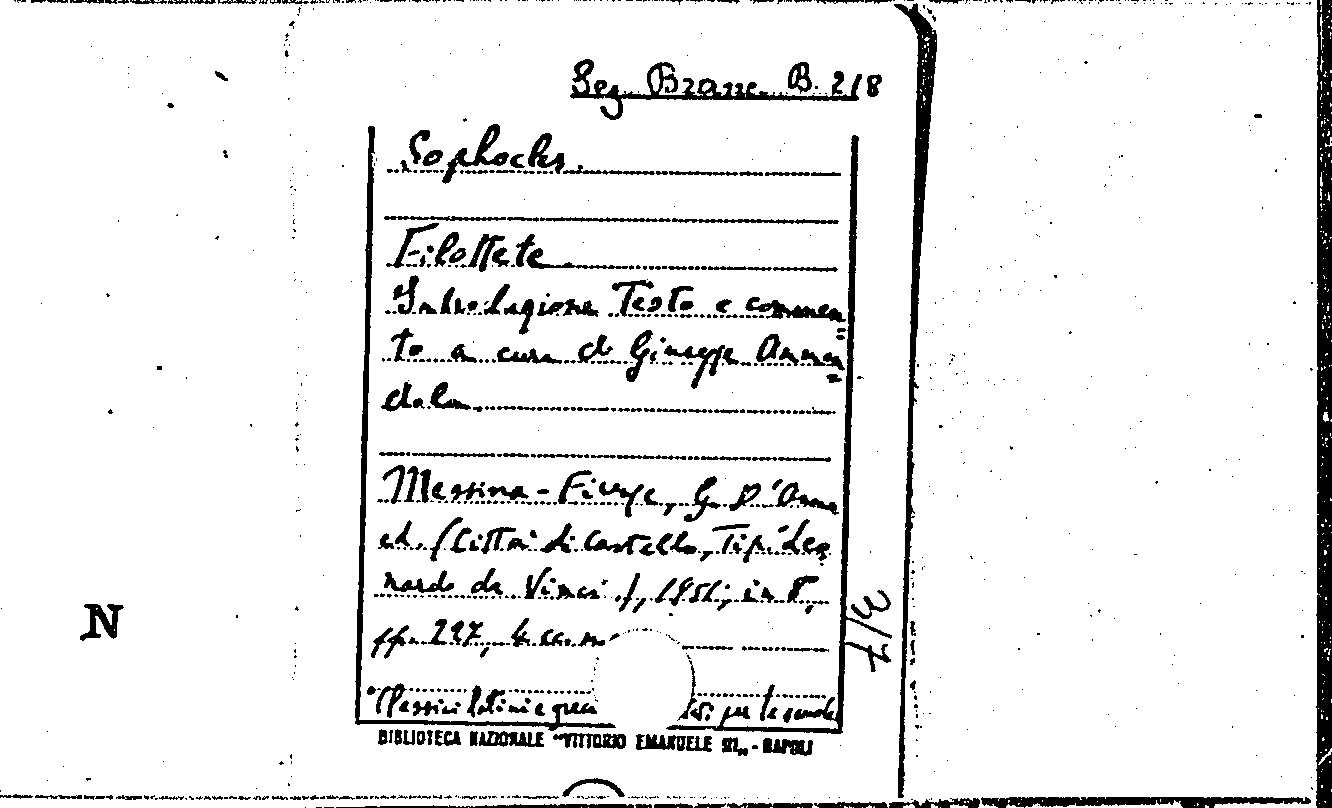 Sez. Branc. B. 218
Sophocles.
Filottete.
Introduzione Testo e commen=
to a cura di Giuseppe Amma=
dola
Messina - Firenze, G. D'Anna
ed. (Città di Castello, Tip. Leo
nardo da Vinci), 1951, in 8°,
pp. 227, 4 ca.
Classici latini e greci per le scuole
BIBLIOTECA NAZIONALE "VITTORIO EMANUELE III„ - NAPOLI
N